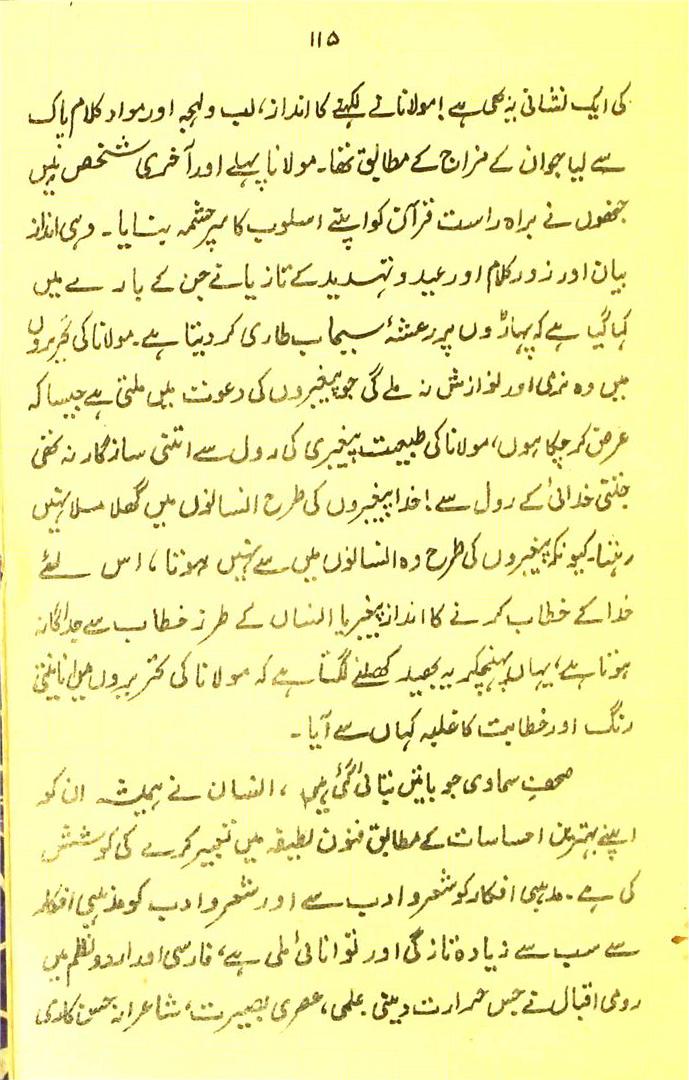 ۱۱۵
کی ایک نشانی یہ بھی ہے! مولانا نے لکھنے کا انداز، لب ولہجہ اور مواد کلام پاک
سے لیا جو ان کے مزاج کے مطابق تھا۔ مولانا پہلے اور آخری شخص ہیں
جنھوں نے براہ راست قرآن کو اپنے اسلوب کا سرچشمہ بنایا۔ وہی انداز
بیان اور زور کلام اور وعید و تہدید کے تازیانے جن کے بارے میں
کہا گیا ہے کہ پہاڑوں پر رعشۂ سیماب طاری کر دیتا ہے۔ مولانا کی تحریروں
میں وہ نرمی اور نوازش نہ ملے گی جو پیغمبروں کی دعوت میں ملتی ہے جیسا کہ
عرض کر چکا ہوں، مولانا کی طبیعت پیغمبری کی رول سے اتنی سازگار نہ تھی
جتنی خدائی کے رول سے! خدا پیغمبروں کی طرح انسانوں میں گھلا ملا نہیں
رہتا۔ کیونکہ پیغمبروں کی طرح وہ انسانوں میں سے نہیں ہوتا، اس لئے
خدا کے خطاب کرنے کا انداز پیغمبر یا انسان کے طرز خطاب سے جداگانہ
ہوتا ہے، یہاں پہنچکر یہ بھید کھلنے لگتا ہے کہ مولانا کی تحریروں میں انانیتی
رنگ اور خطابت کا غلبہ کہاں سے آیا۔
صحف سماوی جو باتیں بتائی گئی ہیں، انسان نے ہمیشہ ان کو
اپنے بہترین احساسات کے مطابق فنون لطیفہ میں تعبیر کرنے کی کوشش
کی ہے۔ مذہبی افکار کو شعر و ادب سے اور شعر و ادب کو مذہبی افکار
سے سب سے زیادہ تازگی اور توانائی ملی ہے، فارسی اور اردو نظم میں
رومی اقبال نے جس حرارت دینی علمی، عصری بصیرت، شاعرانہ حسن کاری